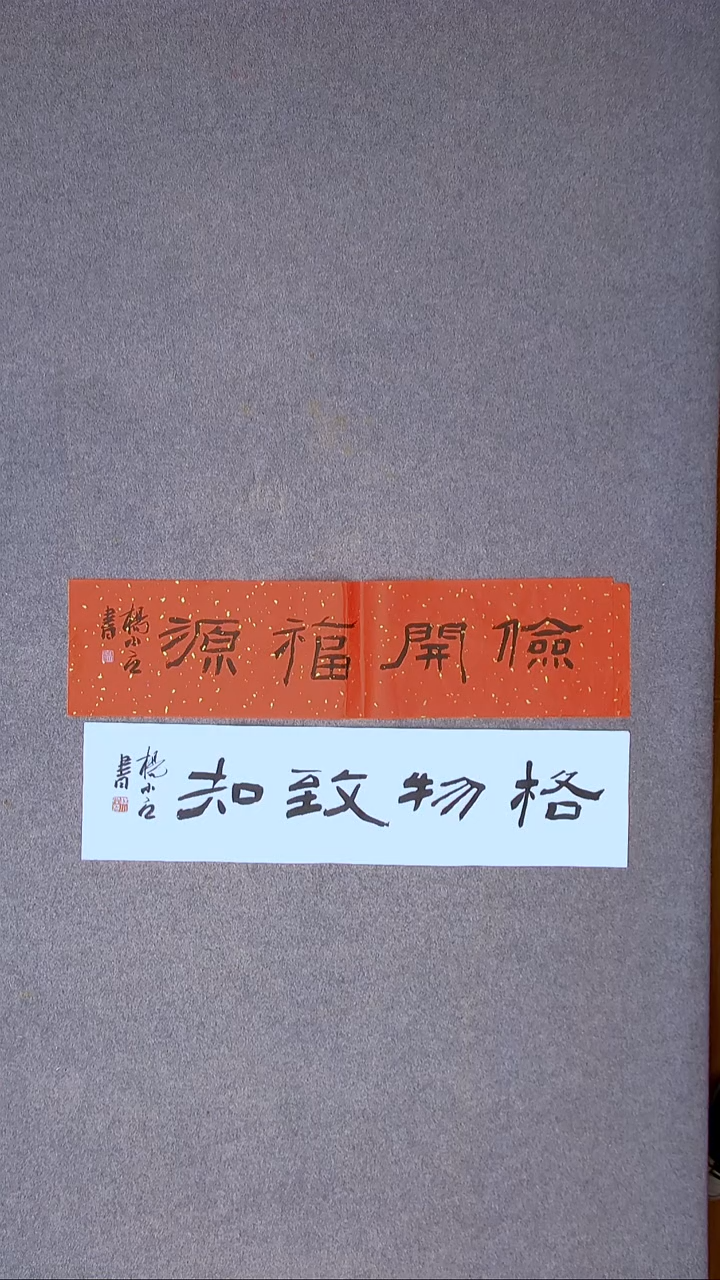 儉開福源
楊小
書
格物致知
楊小
書